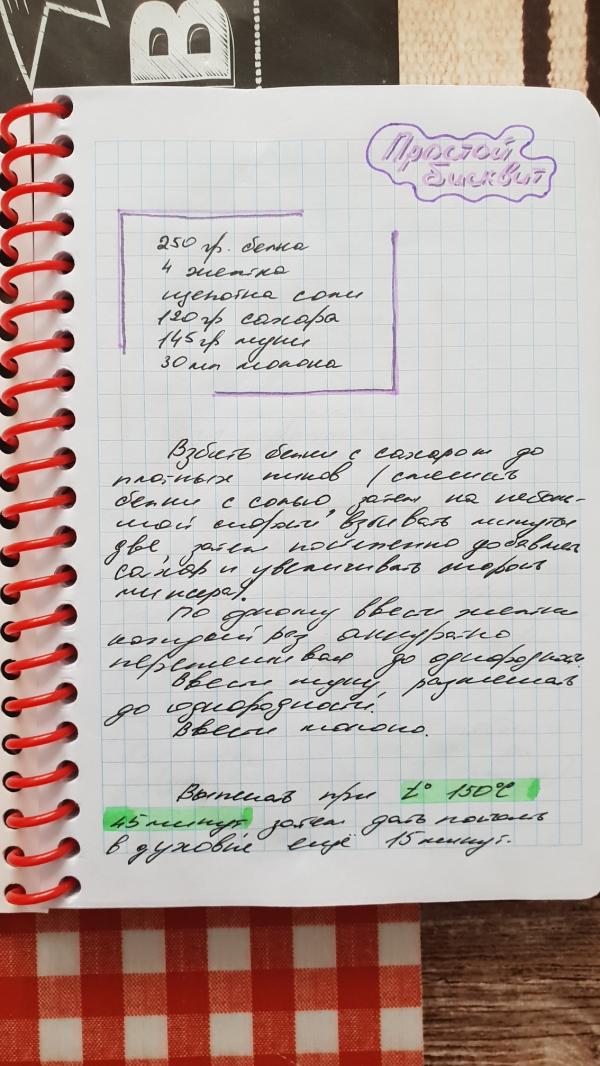 B
Простой
бисквит
250 гр. белка
4 желтка
щепотка соли
120 гр сахара
145 гр муки
30 мл молока
Взбить белки с сахаром до
плотных пиков (смешать
белки с солью, затем на неболь-
шой скорости взбивать минуты
две, затем постепенно добавлять
сахар и увеличивать скорость
миксера).
По одному ввести желтки
каждый раз аккуратно
перемешивая до однородности.
Ввести муку, размешать
до однородности.
Ввести молоко.
Выпекать при t° 150°C
45 минут затем дать постоять
в духовке ещё 15 минут.